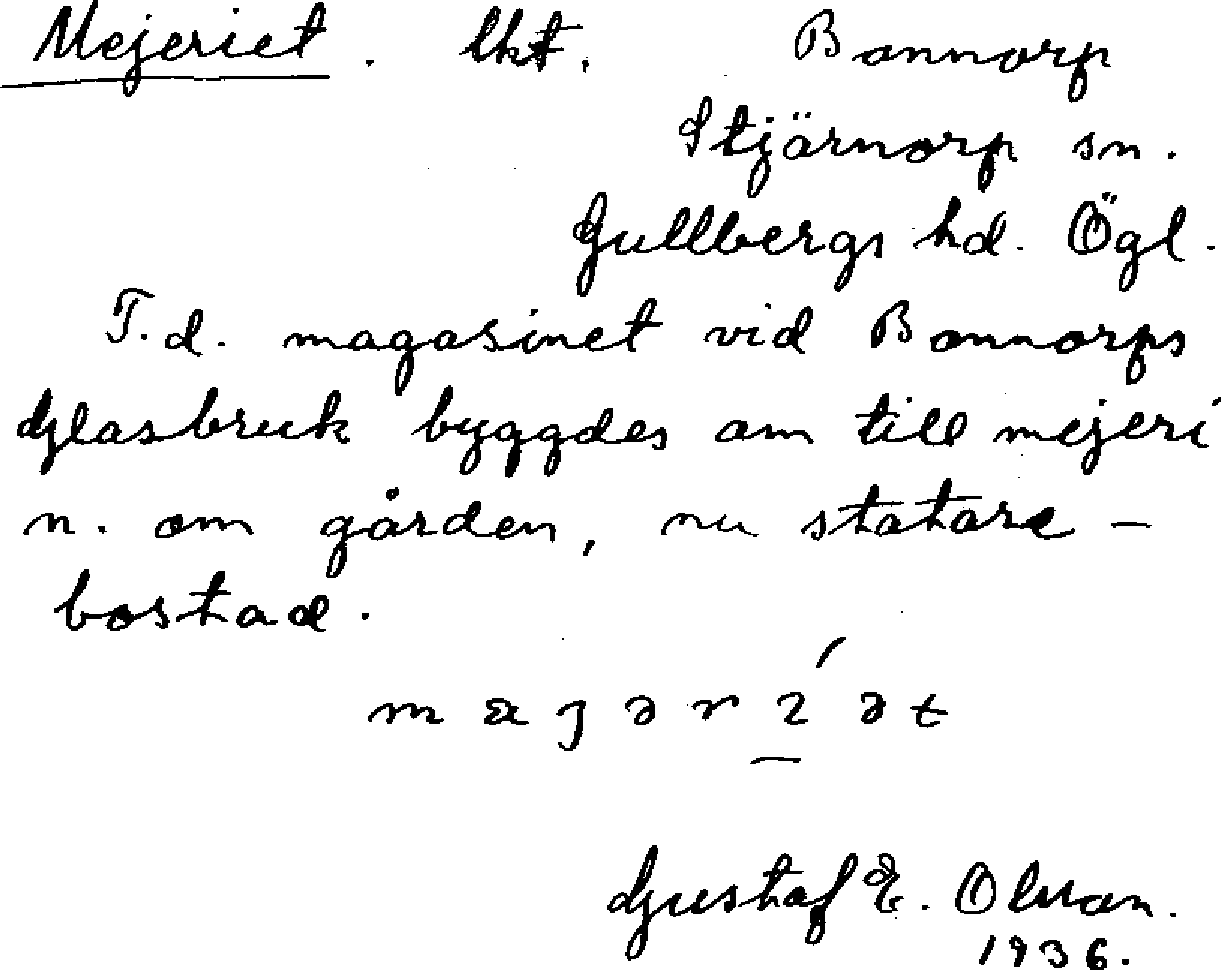 Mejeriet. lht. Bonnorp
Stjärnorp sn.
Gullbergs hd. Ögl.
F.d. magasinet vid Bonnorps
Glasbruk byggdes om till mejeri
n. om gården, nu statare-
bostad.
mæjərí̱ət
Gustaf E. Olsson.
1936.